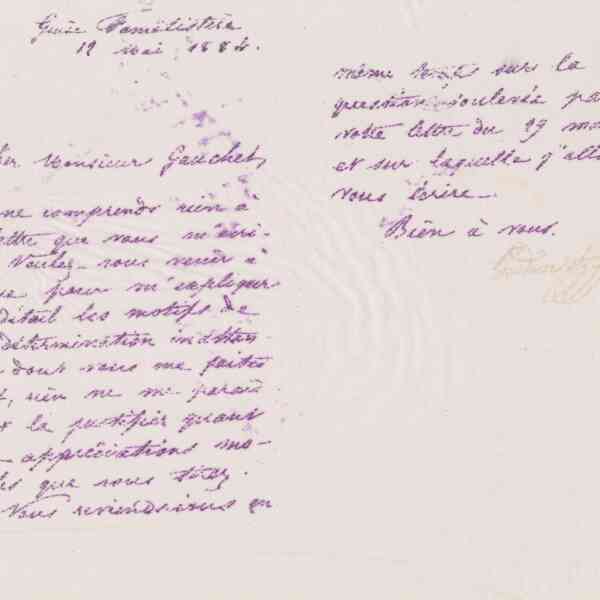 Guise Familistère
12 mai 1884.
her Monsieur Gauchet,
ne comprends rien à
lettre que vous m'écri-
Voulez-vous venir à
pour m'expliquer
détail les motifs de
détermination inatten-
dont vous me faites
, rien ne me paraît
la justifier quant
appréciations mo-
les que vous tirez.
Vous reviendrions en
même temps sur la
question soulevée pa
votre lettre du 29 ma
et sur laquelle j'alla
vous écrire.
Bien à vous.